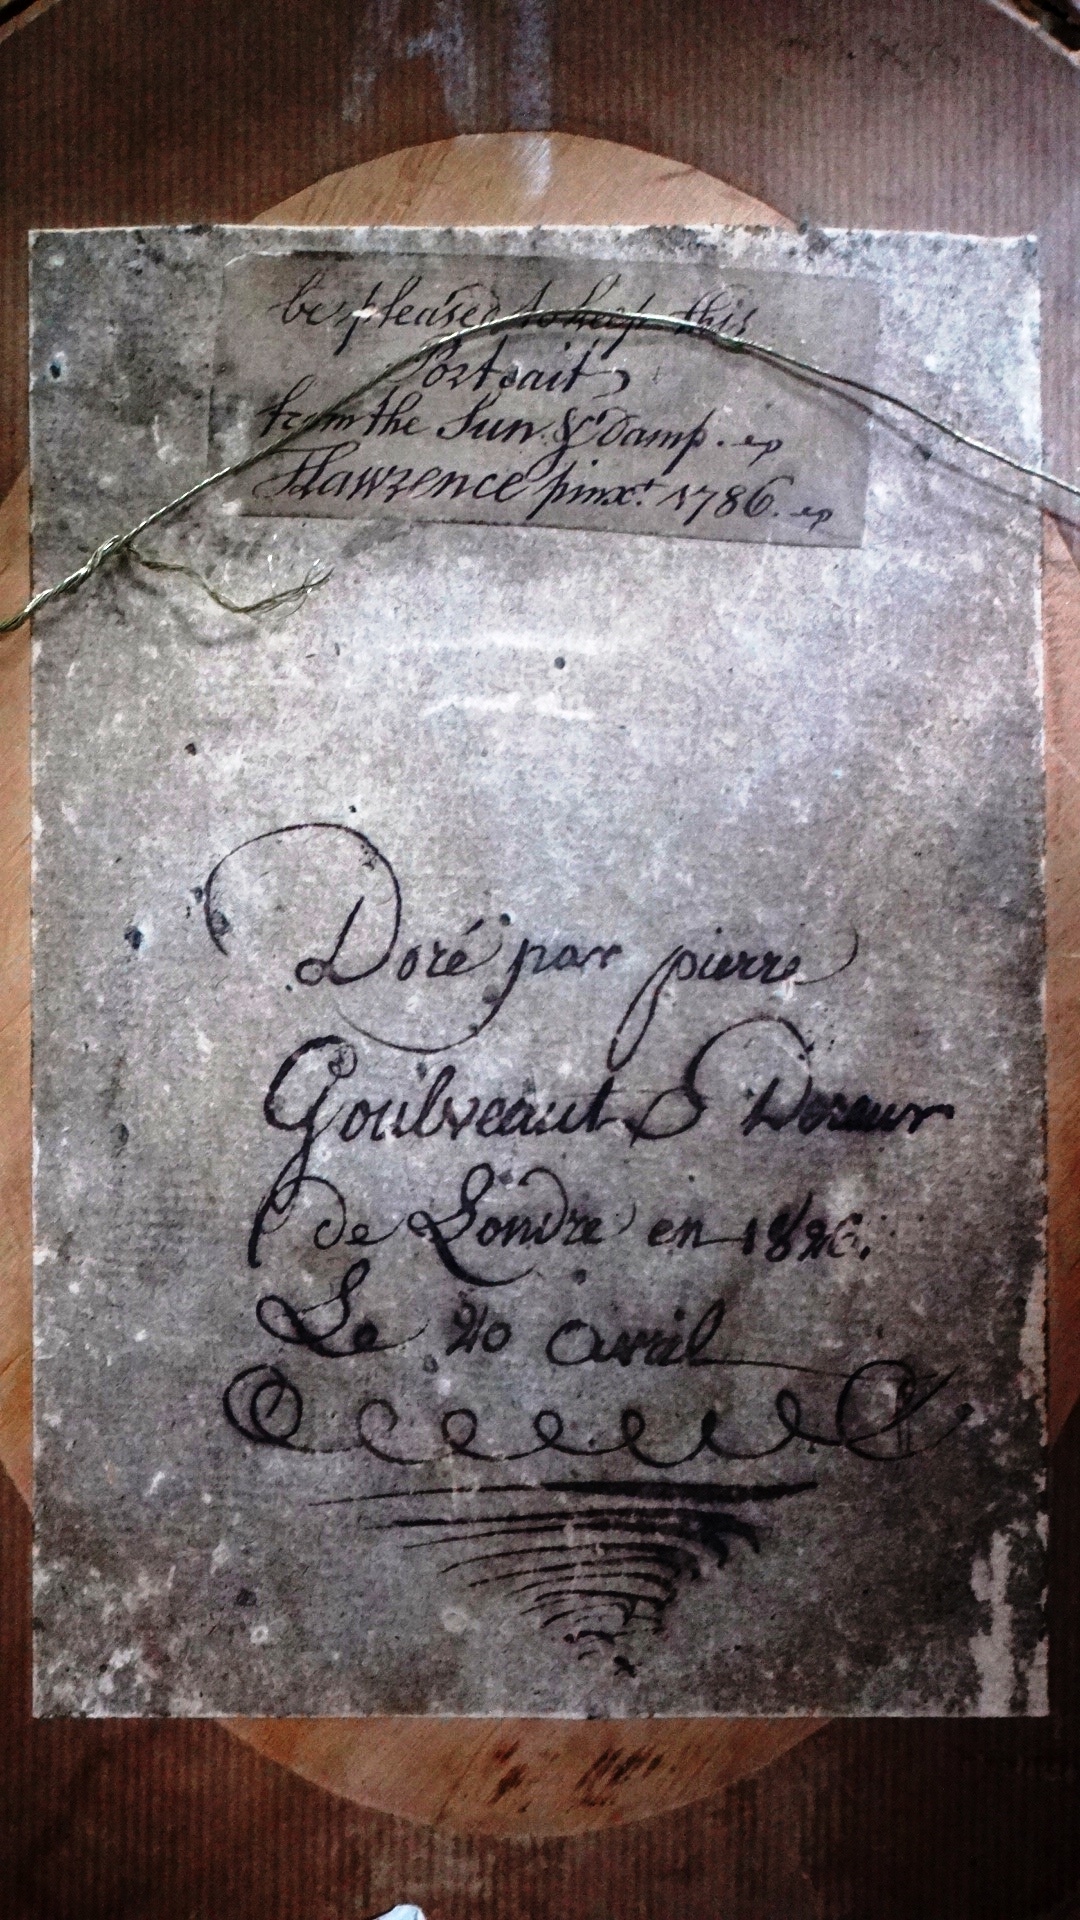 be pleased to keep this
Portrait
from the Sun & Damp.
TLawrence pinxt. 1786.
Doré par pierre
Doreur
de Londre en 1826.
Le 20 avril